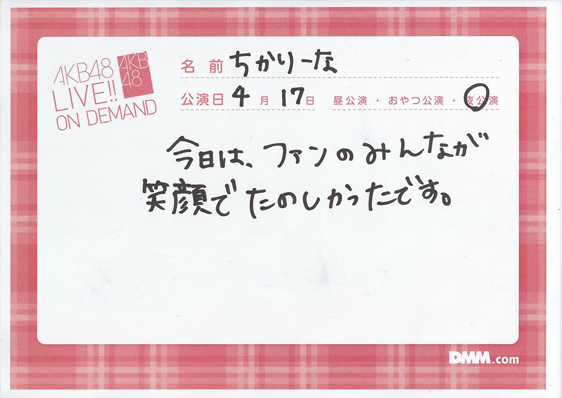 AKB48
LIVE!!
ON DEMAND
AKB
48
名前 ちかりーな
公演日 4月17日 昼公演・おやつ公演・夜公演
今日は、ファンのみんなが
笑顔でたのしかったです。
DMM.com